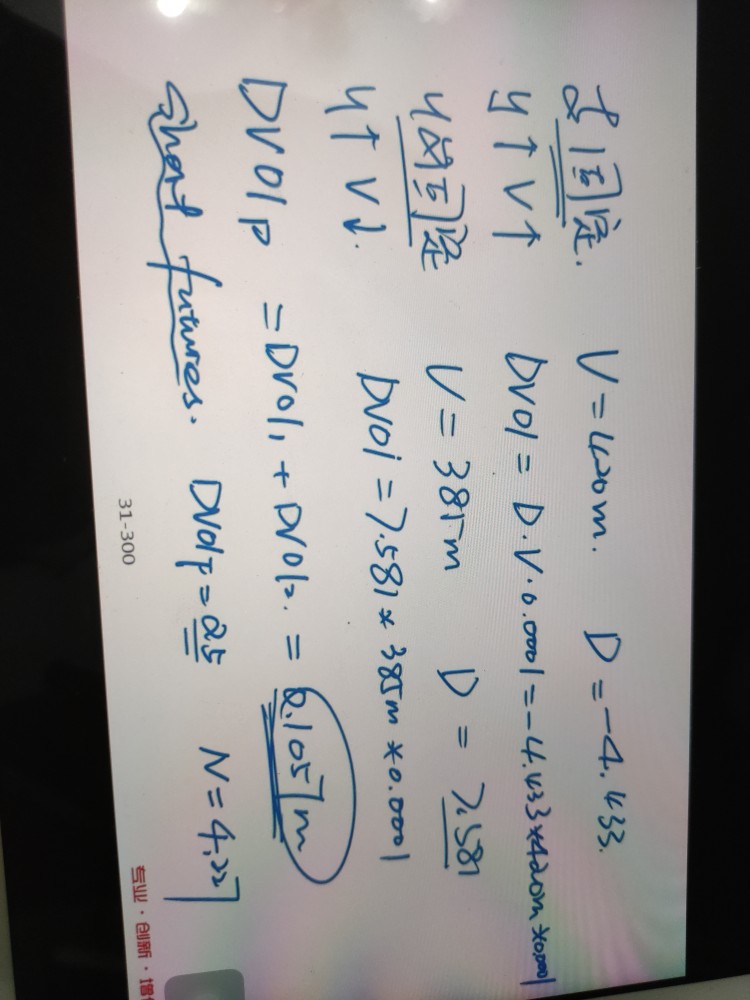 固定. V = 420m. D = -4.433.
y↑ V↑ DV01 = D.V.0.0001 = -4.433*420m*0.0001
收固定 V = 385m D = 7.581
y↑ V↓. DV01 = 7.581 * 385m * 0.0001
DV01p = DV01₁ + DV01₂. = 0.1057m
Short futures. DV01F = 25 N = 4,227
31-300
专业 · 创新 · 增